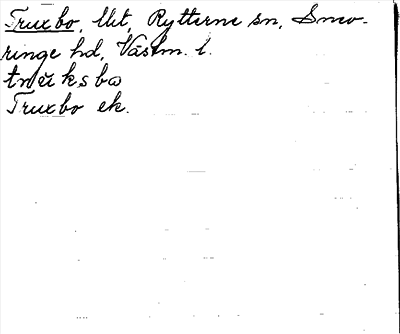 Truxbo, lht, Rytterne sn, Snev-
ringe hd, Västm. l.
Truxbo ek.